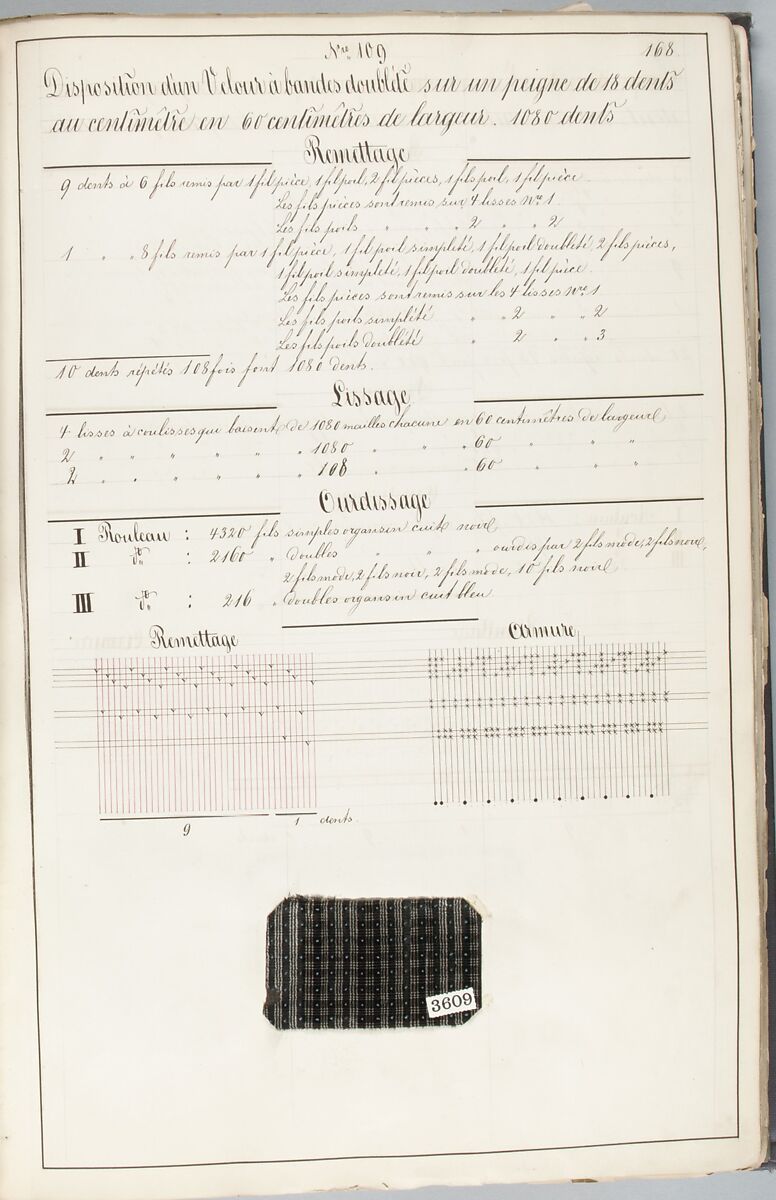 Nro 109
168
Disposition d'un Velour à bandes doublété sur un peigne de 18 dents
au centimêtre en 60 centimêtres de largeur. 1080 dents
Remettage
9 dents à 6 fils remis par 1 fil pièce, 1 fil poil, 2 fil pièces, 1 fils poil, 1 fil pièce.
Les fils pièces sont remis sur 4 lisses Nro 1
Les fils poils " " " 2 " " 2
1 " " 8 fils remis par 1 fil pièce, 1 fil poil simpleté, 1 fil poil doubleté, 2 fils pièces,
1 fil poil simpleté, 1 fil poil doubleté, 1 fil pièce.
Les fils pièces sont remis sur les 4 lisses Nro 1
Les fils poils simplété " " 2 " " 2
Les fils poils doublété " 2 " " 3
10 dents répétés 108 fois font 1080 dents.
Lissage
4 lisses à coulisses que baisent de 1080 mailles chacune en 60 centimêtres de largeur
2 " " " " " " 1080 " " " 60 " " "
2 " " " " " " 108 " " 60 " " "
Ourdissage
I Rouleau : 4320 fils simples organsin cuit noir
II do : 2160 " doubles " " " ourdis par 2 fils mode, 2 fils noir,
2 fils mode, 2 fils noir, 2 fils mode, 10 fils noir
III do : 216 " doubles organsin cuit bleu
Remettage
Armure
9 1 dents.
3609